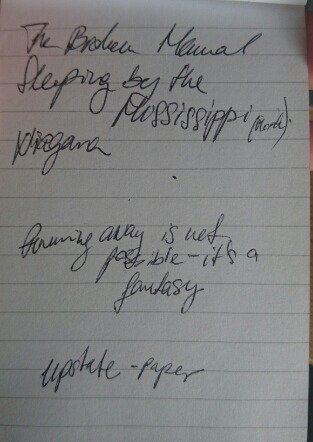 The Broken Manual
Sleeping by the
Mississippi (book).
Niagara
Running away is not
possible - it's a
fantasy
upstate - paper